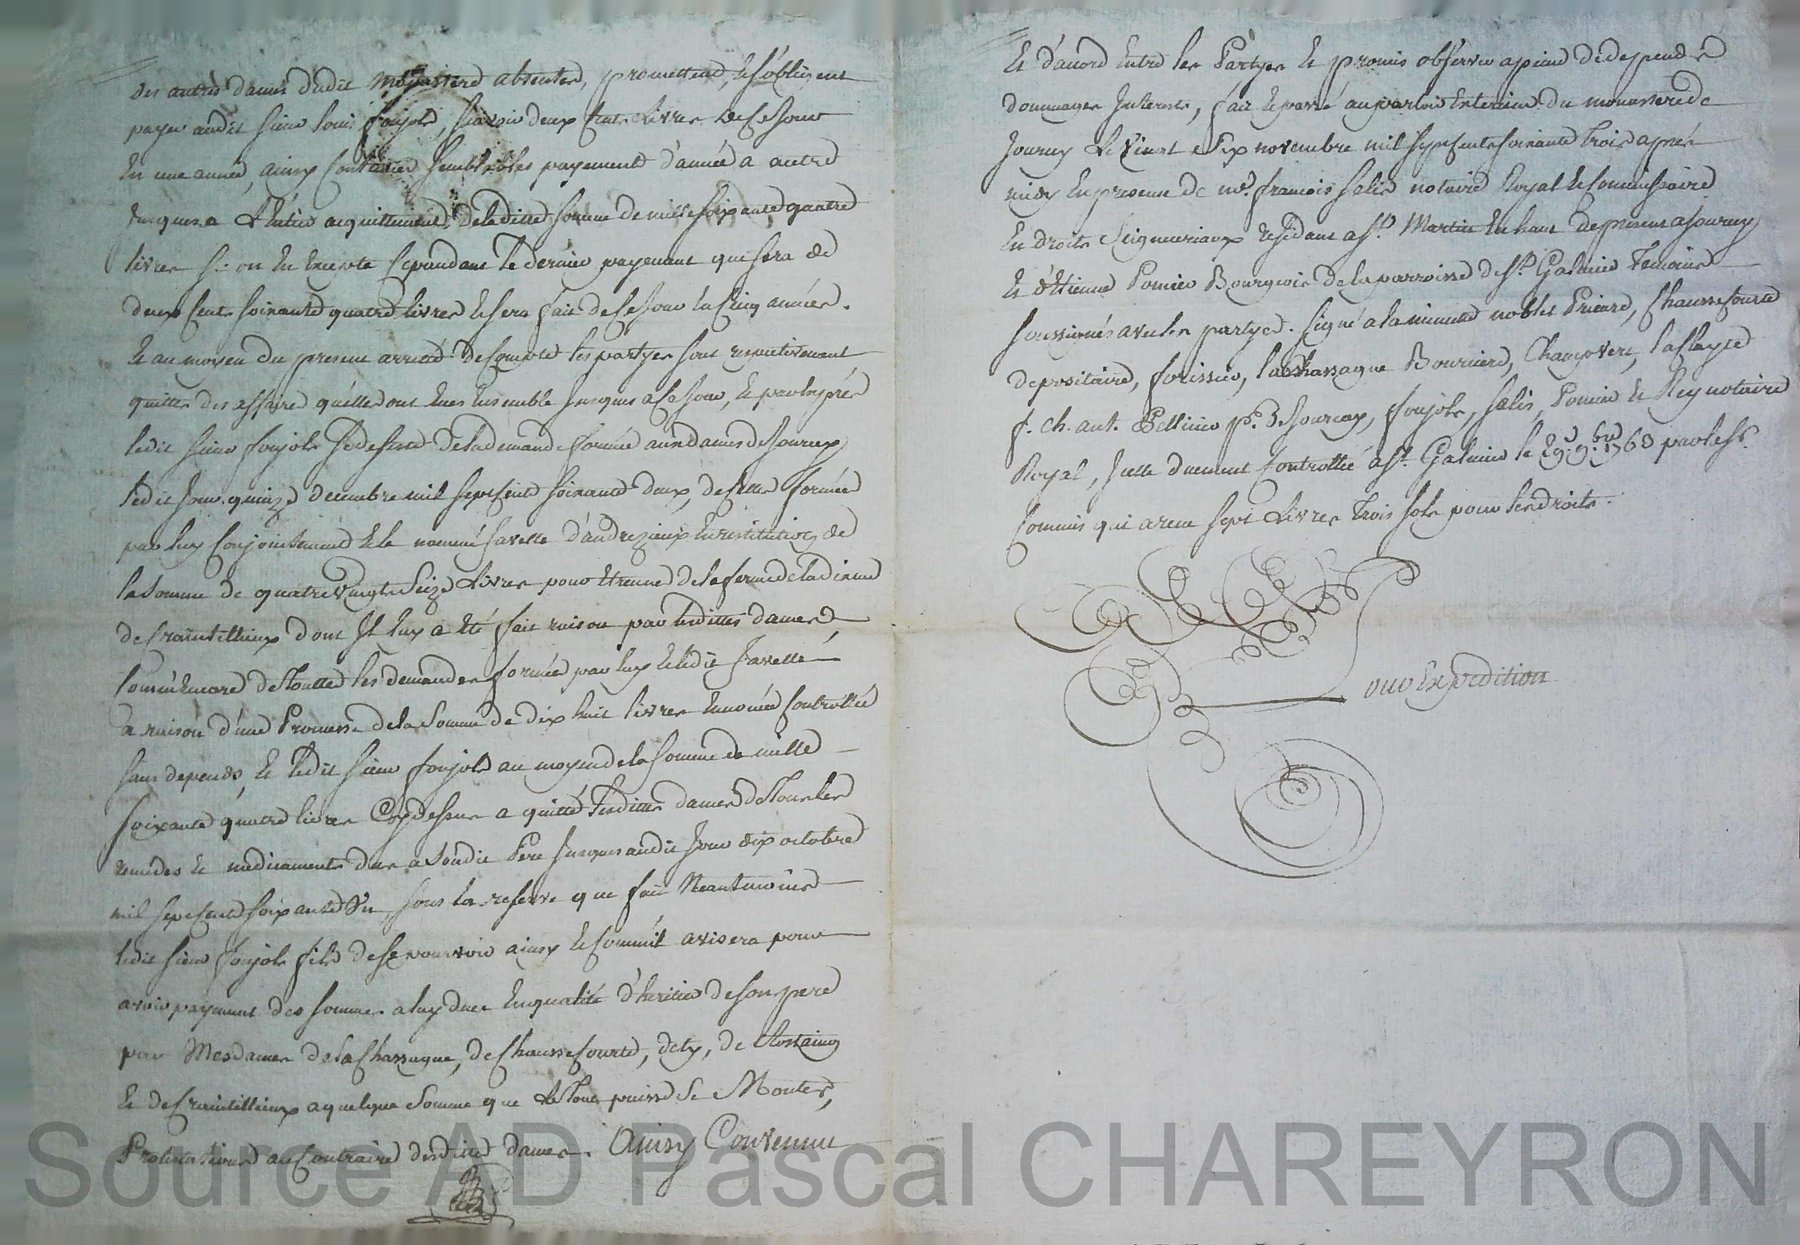 des autres dames dudit monastere absentes, promettent, et s'obligent
payer audit sieur Louis foujols, sçavoir deux cents Livres de ce jour
en une année, ainsy continuer semblables payement d'année a autre
jusques a L'entier acquittement de la ditte somme de mille soixante quatre
livres
dernier payement qui sera de
deux cents soixante quatre livres et sera fait de ce jour en cinq années.
et au moyen du present arreté de compte les partyes sont respectivement
quittes des affaire qu'elles ont eues ensemble jusques a ce jour, et par exprés
ledit sieur foujols se desiste de la demande formée aux dames de Jourcey
ledit jour quinze decembre mil sept cents soixante deux, de celle formée
par luy conjointement et le nommé favelle d'andrezieux en restitution de
la somme de quatre vingt seize Livres pour etrenne de la ferme de la dixme
de Craintillieux dont il luy a été fait raison par lesdittes dames
comm'encore de Touttes les demandes formée par luy et ledit favelle
a raison d'une Promesse de la somme de dix huit livres controllée
sans depends, et ledit sieur foujols au moyen de la somme de mille
soixante quatre livres Cy dessus a quitté lesdittes dames de Tous les
remedes et medicaments dus a son dit Pere jusques audit jour dix octobre
mil sept cents soixante Un, sous la reserve que fait Neantmoins
ledit sieur foujols fils de se pourvoir ainsy et comm'il avisera pour
avoir payement des sommes a luy dues en qualité d'heritier de son pere
par Mesdames de la Chassagne, de Chaussecourte, de Rostaing
et de Craintillieux a quelque somme que le Tout puisse se Monter,
Protestations au Contraire desdittes dames. Ainsy Convenu
et d'accord entre les Partyes et promis observer a peine de depends
dommages Interests, fait et passé au parloir exterieur du monastere de
Jourcey le Vingt six novembre mil sept cents soixante trois aprés
midy en presence de me. francois solis notaire Royal et Commissaire
en droits seigneuriaux residant a St. Martin en haut de present a Jourcey
et Etienne Ponier Bourgeois de la parroisse de St. Galmier Temoins
soussignés avec les partyes. signé a la minutte nobles Prieure, Chaussecourte
depositaire, forissier, la Chassagne Bourciere, Champvert, la
f. ch. ant. Pellicier pr. de Jourcey, foujols, solis, Ponier et Rey notaire
Royal, Icelle duement controllée a St. Galmier le 29e. 9.bre 1763 par le Sr.
Commis qui a recu sept Livres trois sols pour les droits.
our Expedition
Source AD Pascal CHAREYRON